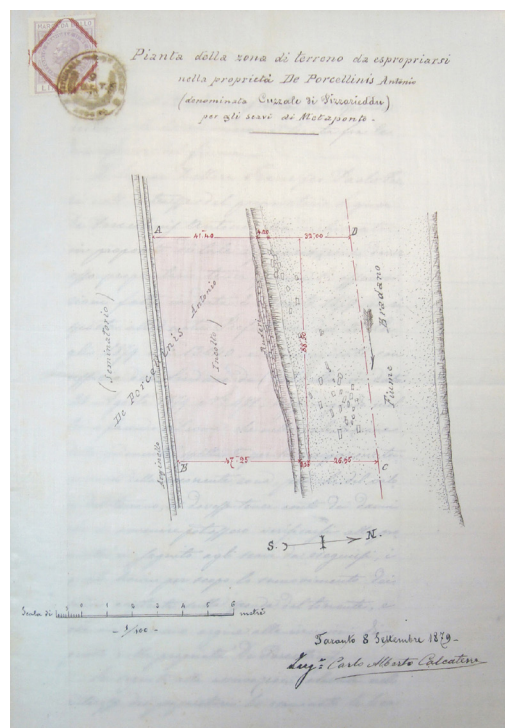 Pianta della zona di terreno da espropriarsi
nella proprietà De Porcellinis Antonio
(denominata Cuzzale di Vizzarieddu)
per gli scavi di Metaponto.
A
41.40
4.80
22.00
D
(Seminatorio)
De Porcellinis Antonio
(Incolto)
Argine
Fiume Bradano
Arginello
B
47.25
26.95
C
S. N.
Scala di 1 0 1 2 3 4 5 6 metri
1/100
Taranto 8 Settembre 1879
Ing.e Carlo Alberto Calcatene